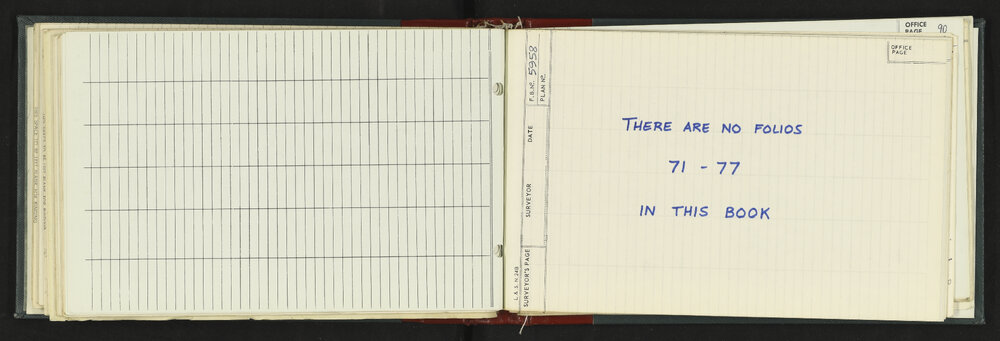 OFFICE
PAGE 90
OFFICE
PAGE
L & S. N. 248
SURVEYOR'S PAGE
SURVEYOR
DATE
F.B. Nº. 5958
PLAN Nº.
THERE ARE NO FOLIOS
71 - 77
IN THIS BOOK